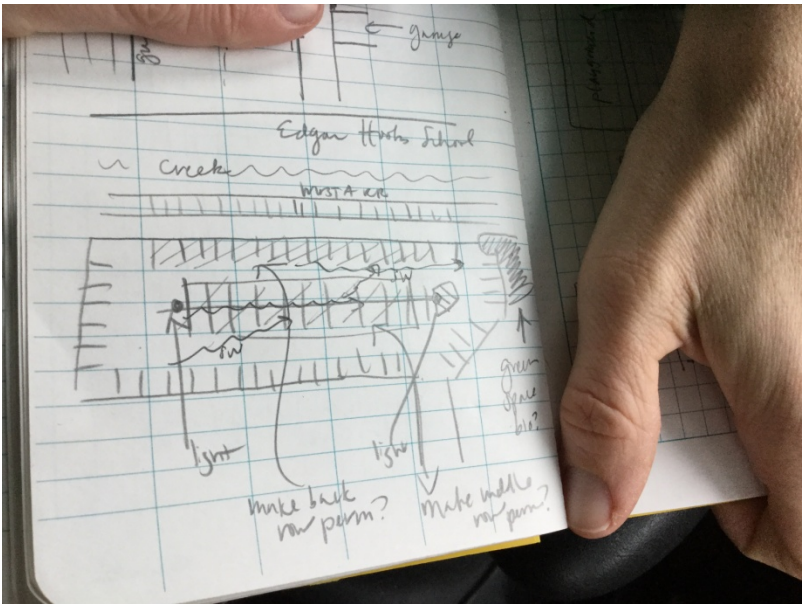 garage
Edgar Hoehs School
creek
MUSTA RR
SW
SW
green
space
bio?
light
light
make back
row perm?
Make middle
row perm?
playground